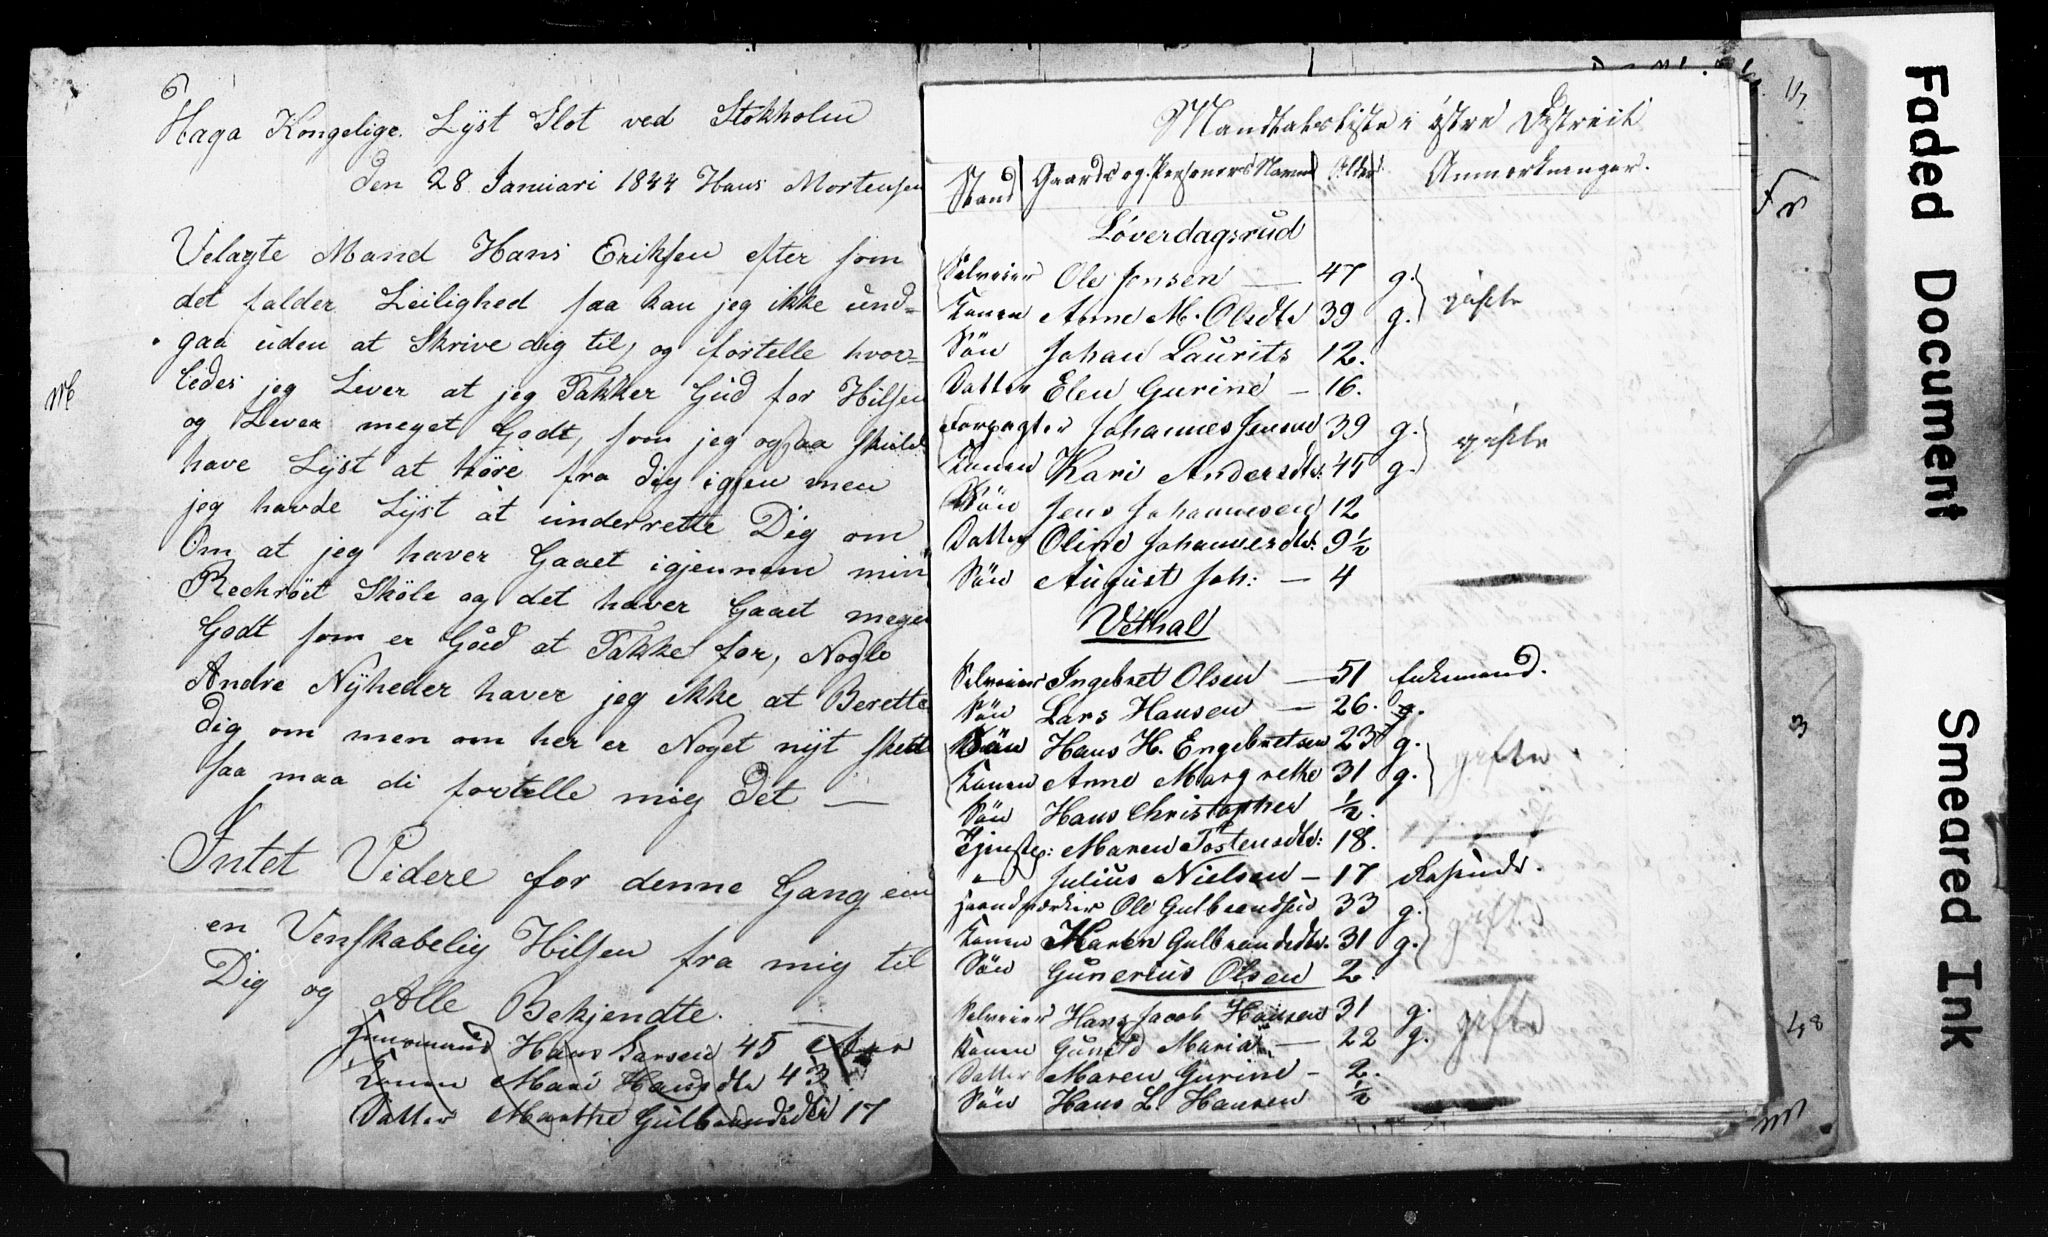 Haga Kongelige Lyst Slot ved Stokholm
den 28 Januari 1844 Hans Mortensen
Velagte Mand Hans Eriksen efter som
det falder Leilighed saa kan jeg ikke und=
gaa uden at Skrive dig til, og fortelle hvor=
ledes jeg Lever at jeg Takker Gud for Hilsen
og Lever meget Godt, som jeg ogsaa skulde
have Lyst at høre fra dig igjen men
jeg havde Lyst at underrette Dig om
Om at jeg haver Gaaet igjennem min
Rechrøet Skole og det haver Gaaet meget
Godt som er Gud at Takke for, Nogle
Andre Nyheder haver jeg ikke at Berette
Dig om men om her er Noget nyt skett
saa maa di fortelle mig Det —
Intet Videre for denne Gang end
en Venskabelig Hilsen fra mig til
Dig og Alle Bekjendte.
Huusmand Hans Larsen 45
Konen Mari Hansdtr 43
Datter Marthe Gulbrandsdtr 17
Mandtalsliste i østre Destreict
Stand Gaards og Personers Navne Alder Anmerkninger.
Løverdagsrud
Selveier Ole Jensen — 47 g. gifte
Konen Anne M. Olsdtr 39 g.
Søn Johan Laurits 12.
Datter Elen Gurine — 16.
Forpagter Johannes Jensen 39 g. gifte
Konen Kari Andersdtr. 45 g.
Søn Jens Johannesen 12
Datter Oline Johannesdtr. 9½
Søn August Joh: — 4
Vethal
Selveier Ingebret Olsen — 51 Enkemand.
Søn Lars Hansen — 26. g.
Søn Hans H. Engebretsen 23 g. gifte
Konen Anne Margrethe 31 g.
Søn Hans Christopher ½.
Tjenste: Maren Tostensdtr: 18.
" Julius Nielsen — 17
Haandværker Ole Gulbrandsen 33 g. gifte
Konen Maren Gulbrandsdtr. 31 g.
Søn Gunerius Olsen 2.
Selveier Hans Jacob Hansen 31 g. gifte
Konen Gunild Maria — 22 g.
Datter Maren Gurine — 2.
Søn Hans L. Hansen ½
Faded Document
Smeared Ink
Fr
3
48